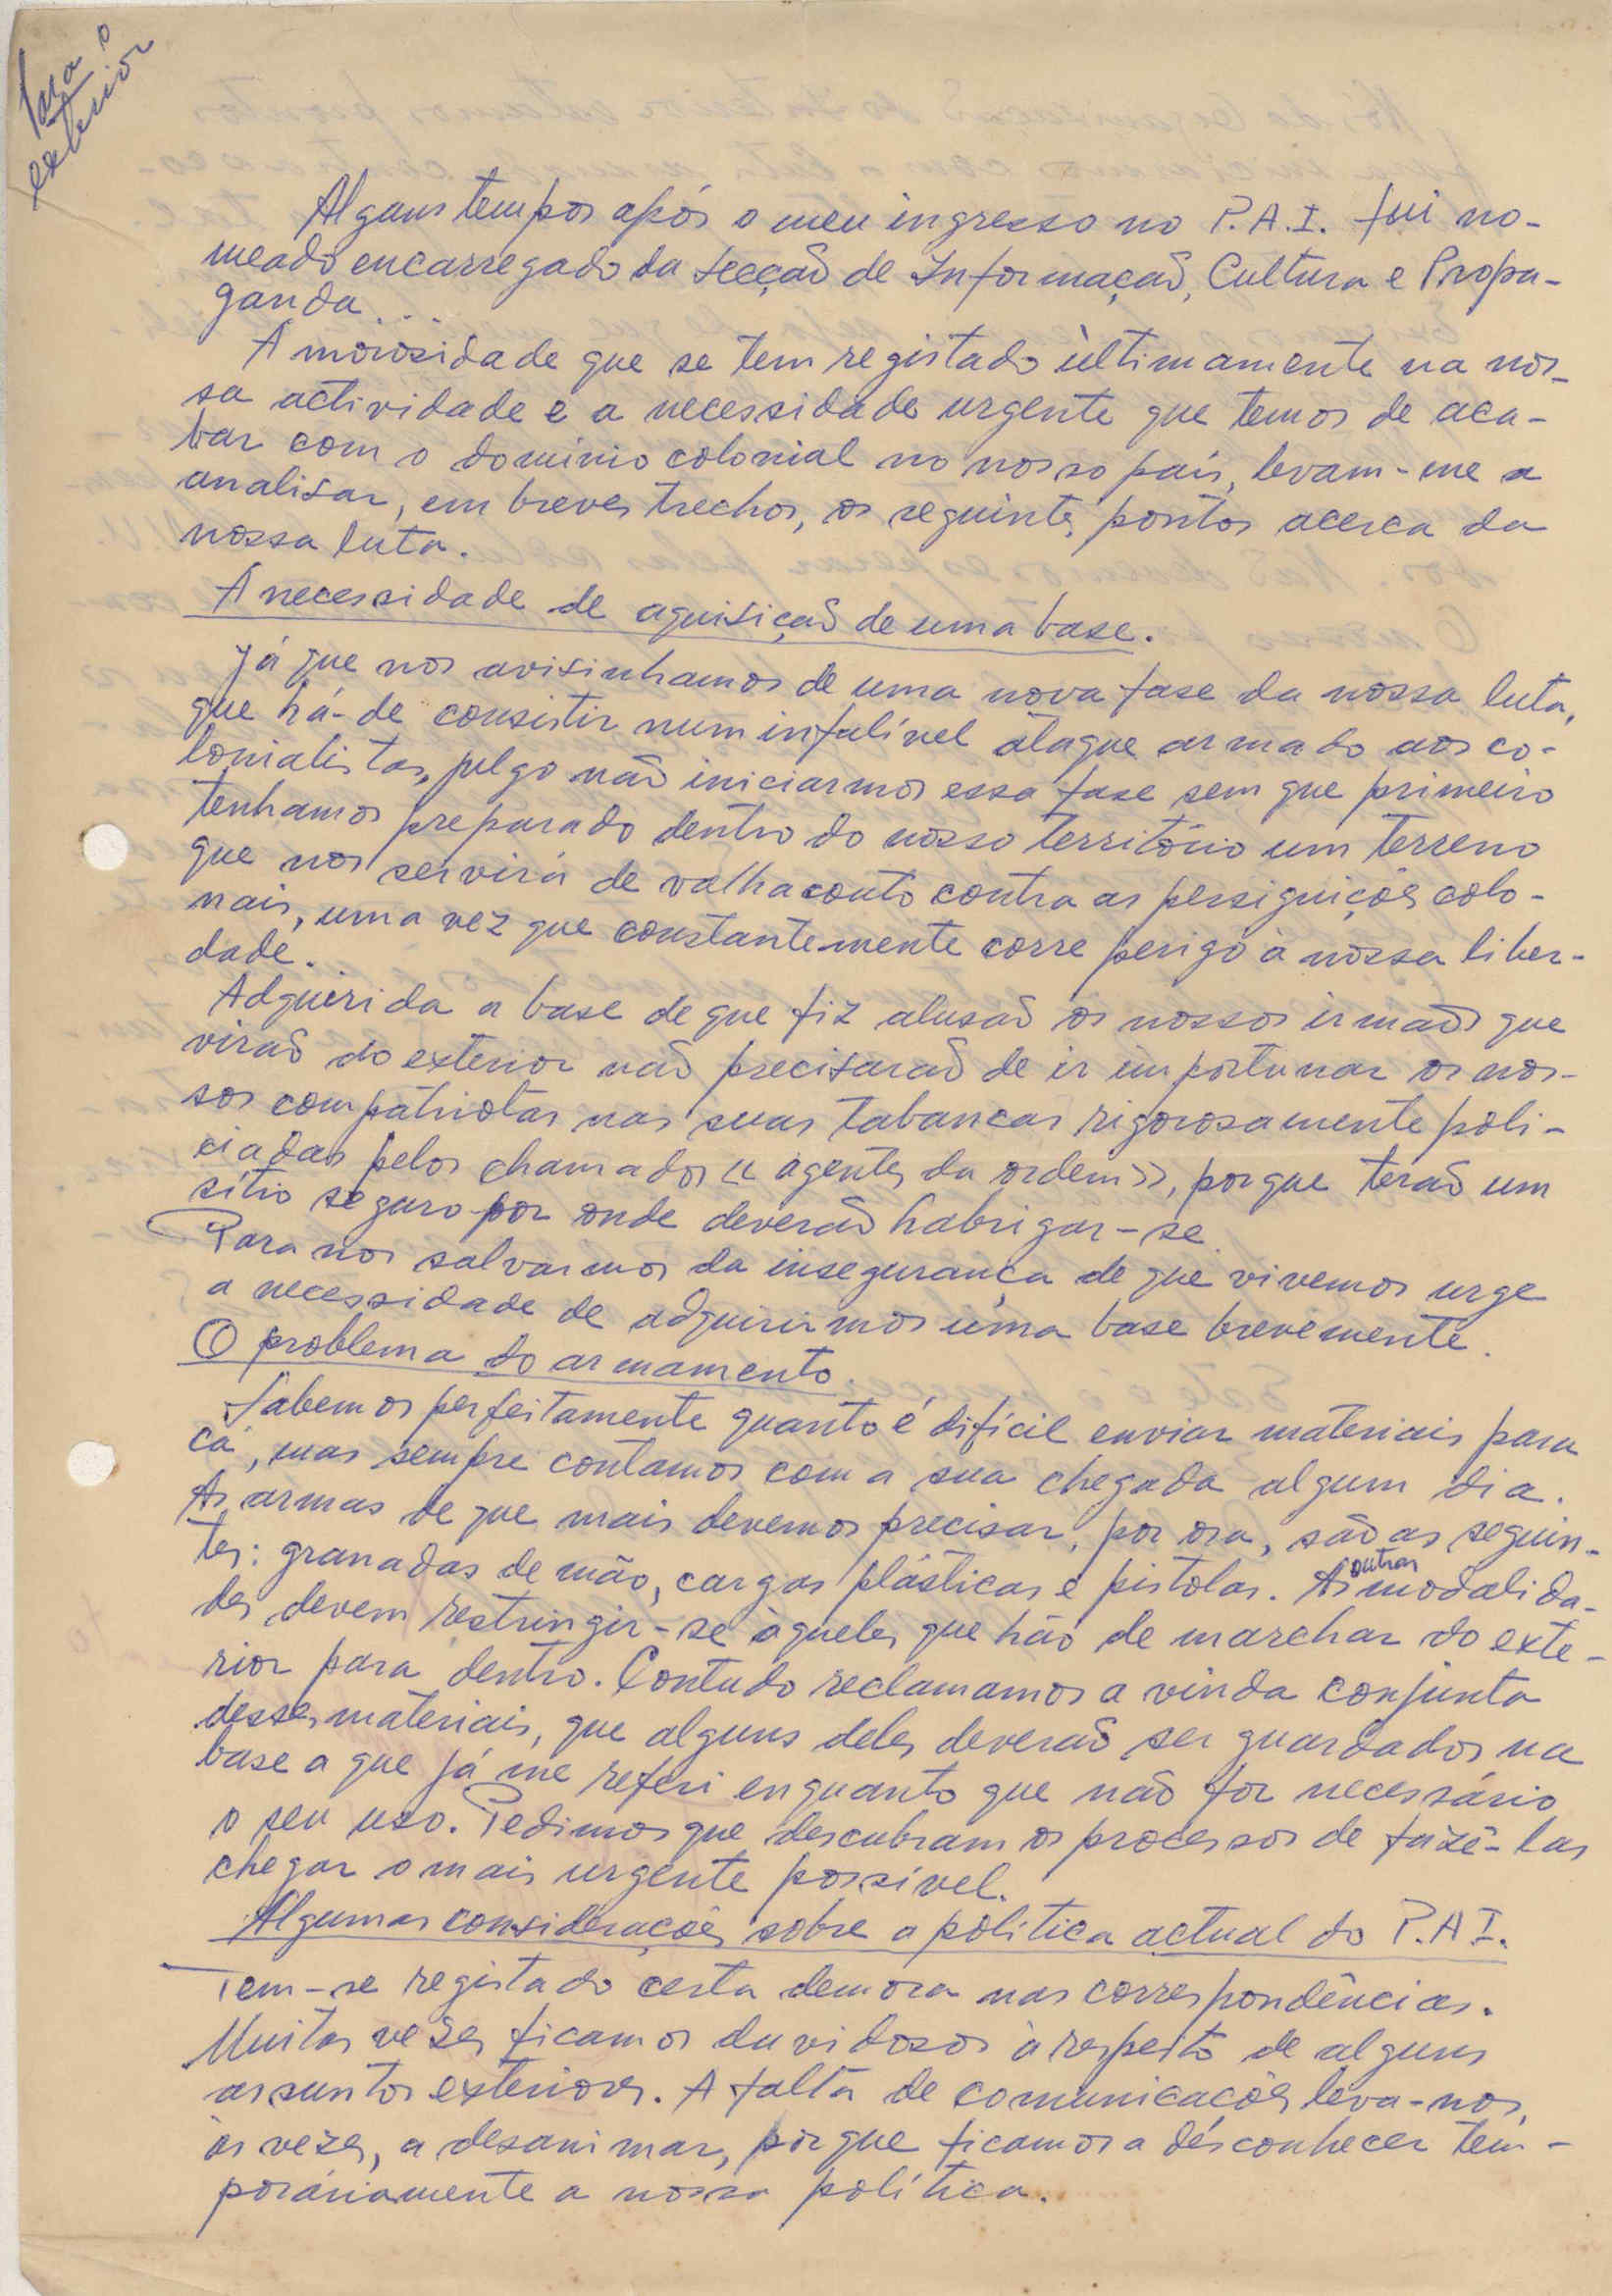 Para o
exterior
Alguns tempos após o meu ingresso no P.A.I. fui no-
meado encarregado da secção de Informação, Cultura e Propa-
ganda...
A morosidade que se tem registado ùltimamente na nos-
sa actividade e a necessidade urgente que temos de aca-
bar com o domínio colonial no nosso país, levam-me a
analisar, em breves trechos, os seguintes pontos acerca da
nossa luta.
A necessidade de aquisição de uma base.
Já que nos avisinhamos de uma nova fase da nossa luta,
que há-de consistir num infalível ataque armado aos co-
lonialistas, julgo não iniciarmos essa fase sem que primeiro
tenhamos preparado dentro do nosso território um terreno
que nos servirá de valhaconto contra as perseguições colo-
nais, uma vez que constantemente corre perigo a nossa liber-
dade.
Adquerida a base de que fiz alusão os nossos irmãos que
virão do exterior não precisarão de ir importunar os nos-
sos compatriotas nas suas tabancas rigorosamente poli-
ciadas pelos chamados «agentes da ordem», porque terão um
sítio seguro por onde deverão habrigar-se.
Para nos salvarmos da insegurança de que vivemos urge
a necessidade de adquirirmos uma base brevemente.
O problema do armamento.
Sabemos perfeitamente quanto é difícil enviar materiais para
cá, mas sempre contamos com a sua chegada algum dia.
As armas de que mais devemos precisar, por ora, são as seguin-
tes: granadas de mão, cargas plásticas e pistolas. As outras modalida-
des devem restringir-se àqueles que hão de marchar do exte-
rior para dentro. Contudo reclamamos a vinda conjunta
desses materiais, que alguns deles deverão ser guardados na
base a que já me referi enquanto que não for necessário
o seu uso. Pedimos que descubram os processos de fazê-las
chegar o mais urgente possível.
Algumas considerações sobre a política actual do P.A.I.
Tem-se registado certa demora nas correspondências.
Muitas vezes ficamos duvidosos a respeito de alguns
assuntos exteriores. A falta de comunicações leva-nos,
às vezes, a desanimar, porque ficamos a desconhecer tem-
poràriamente a nossa política.